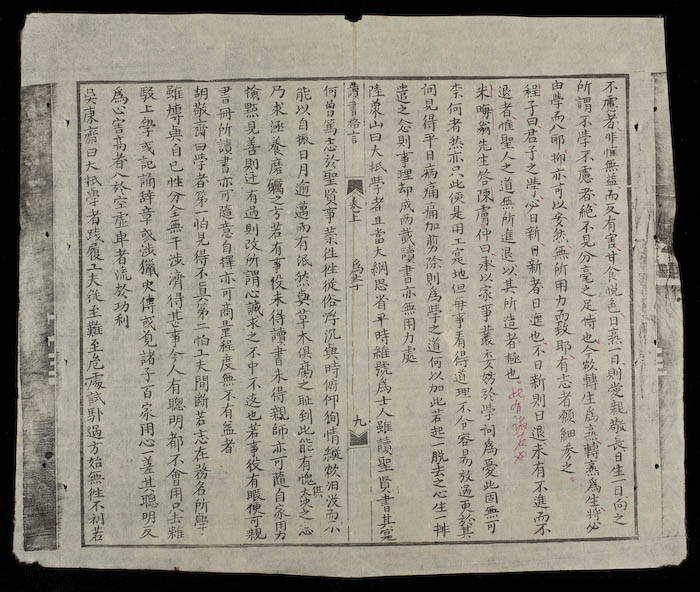 不慮者非惟無益而反有害甘食悅色日熟一日則愛親敬長日生一日向之
所謂不學不慮者絕不見分毫之足恃也今欲轉生為熟轉熟為生將必
由學而入耶抑亦可以安然無所用力而致耶有志者願細參之
程子曰君子之學必日新日新者日進也不日新則日退未有不進而不
退者惟聖人之道無所進退以其所造者極也
朱晦翁先生答陳膚仲曰承以家事叢冗妨於學問為憂此固無可
奈何者然亦只此便是用工實地但每事看得道理不令容易放過更於其
間見得平日病痛痛加剪除則為學之道何以加此若起一脫去之心生一排
遣之念則事理却成兩截讀書亦無用力處
陸象山曰大抵學者且當大綱思省平時雖號為士人雖讀聖賢書其實
讀書格言 卷上 為學 九
何曾篤志於聖賢事業往往從俗浮沉與時俯仰徇情縱欲汩沒而不
能以自振日月逾邁而有泯然與草木俱腐之恥到此能有愧懼大決之心
乃求涵養磨礪之方若有事役未得讀書未得親師亦可隨自家用力
檢點見善則遷有過則改所謂心誠求之不中不遠也若事役有暇便可親
書冊所讀書亦可隨意自擇亦可商量程度無不有益者
胡敬齋曰學者第一怕見得不真第二怕工夫間斷若志在務名所學
雖博與自己性分全無干涉濟得甚事今人有聰明都不會用只去雜
駁上學或記誦辭章或涉獵史傳或泛諸子百家用心一差其聰明反
為心害高者入於空虛卑者流於功利
吳康齋曰大抵學者踐履工夫從至難至危處試驗過方始無往不利若